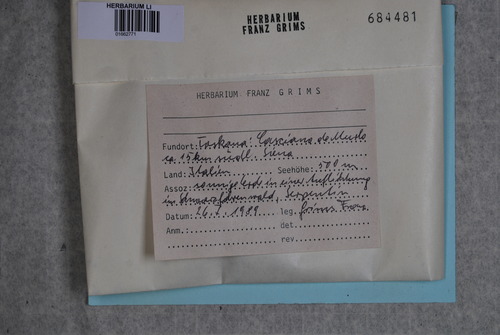 HERBARIUM LI
01662771
HERBARIUM
FRANZ GRIMS
684481
HERBARIUM FRANZ GRIMS
Fundort: Toskana: Casciano de Murlo
ca. 15 km südl. Siena
Land: Italien Seehöhe: 500 m
Assoz. sonnige Erde in einer Auflichtung
in Schwarzföhrenwald, Serpentin
Datum: 26. 1989 leg. Grims Franz
Anm.: det.
rev.